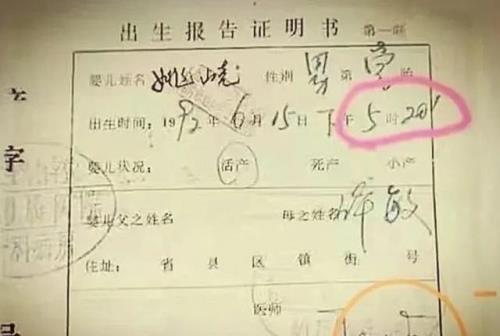 出生报告证明书 第一联
婴儿姓名 姚小 性别 男 第 胎
出生时间：1992年6月15日下午5时20'
字
婴儿状况： 活产 死产 小产
婴儿父之姓名 母之姓名 许敏
住址： 省 县 区 镇 街 号
号
医师